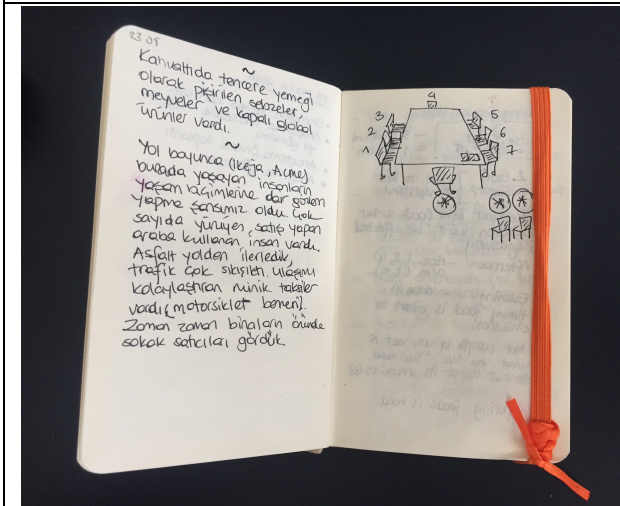 23.05
~
Kahvaltıda tencere yemeği
olarak pişirilen sebzeler,
meyveler ve kapalı global
ürünler vardı.
~
Yol boyunca (Ikeja, Acme)
burada yaşayan insanların
yaşam biçimlerine dair gözlem
yapma şansımız oldu. Çok
sayıda yürüyen, satış yapan
araba kullanan insan vardı.
Asfalt yolden ilerledik,
trafik çok sıkışıktı. Ulaşımı
kolaylaştıran minik taksiler
vardı (motorsiklet benzeri).
Zaman zaman binaların önünde
sokak satıcıları gördük
4
3
5
2
6
1
7